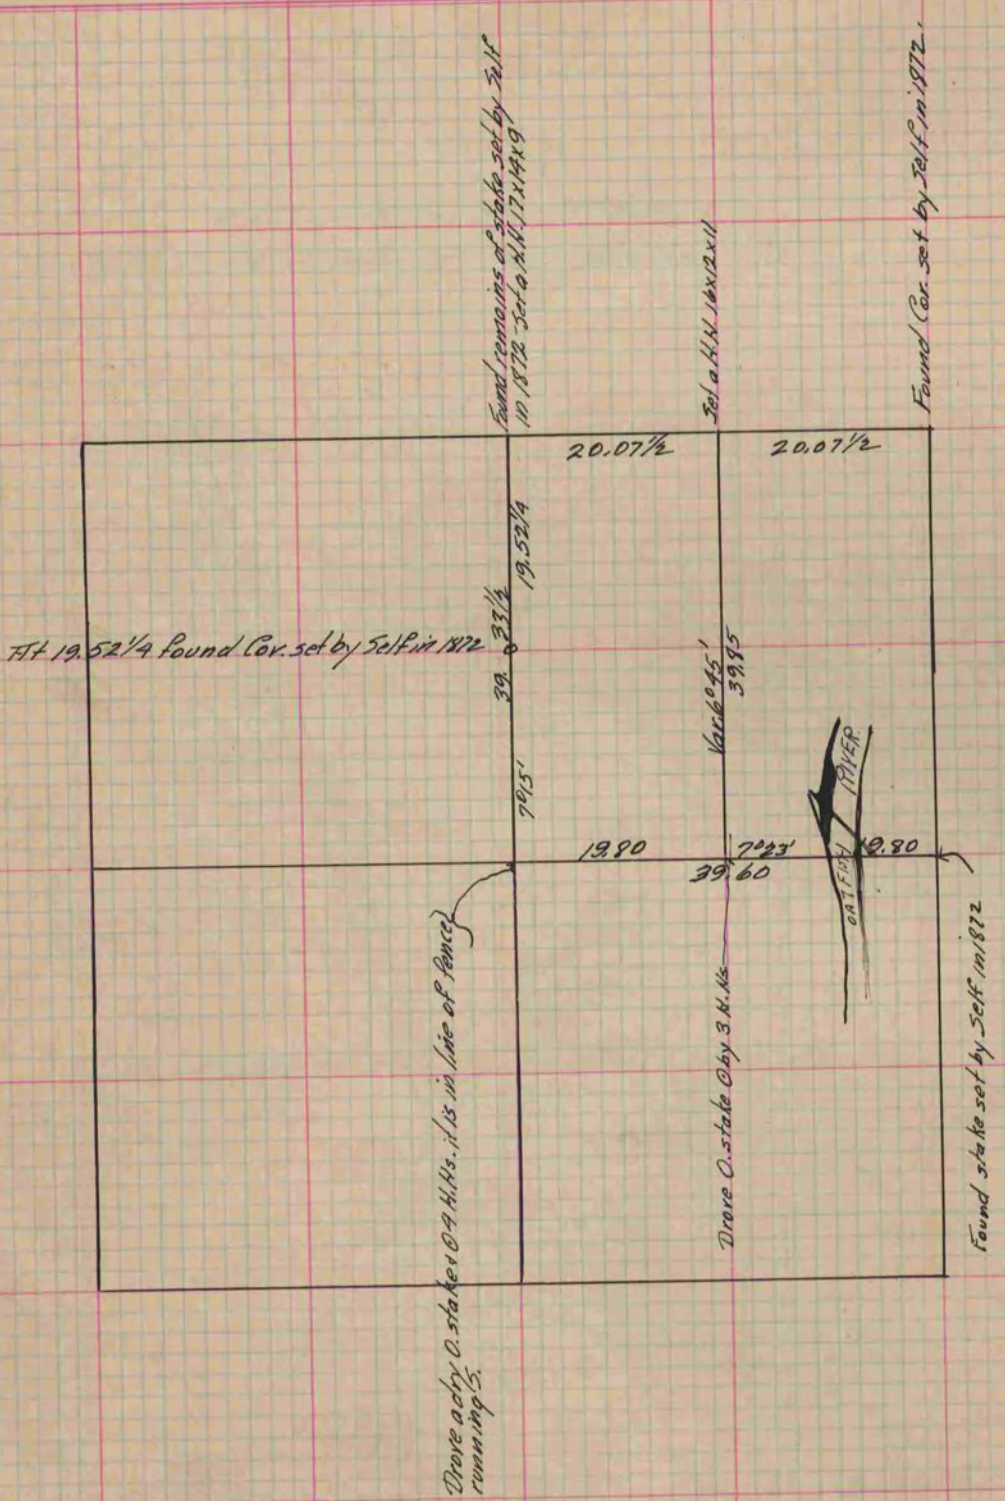 Found remains of stake set by Self
in 1872 - Set a H.H. 17x14x9
Set a H.H. 16x12x11
Found Cor. set by Self in 1872.
20.07 1/2
20.07 1/2
19.52 1/4
At 19.52 1/4 found Cor. set by Self in 1872
39.33 1/2
Var. 6° 45'
39.85
7° 15'
19.80
7° 23'
19.80
39.60
RIVER
Drove a dry O. stake & 4 H.Hs. it is in line of fence
running S.
Drove O. stake by 3 H.Hs.
Found stake set by Self in 1872